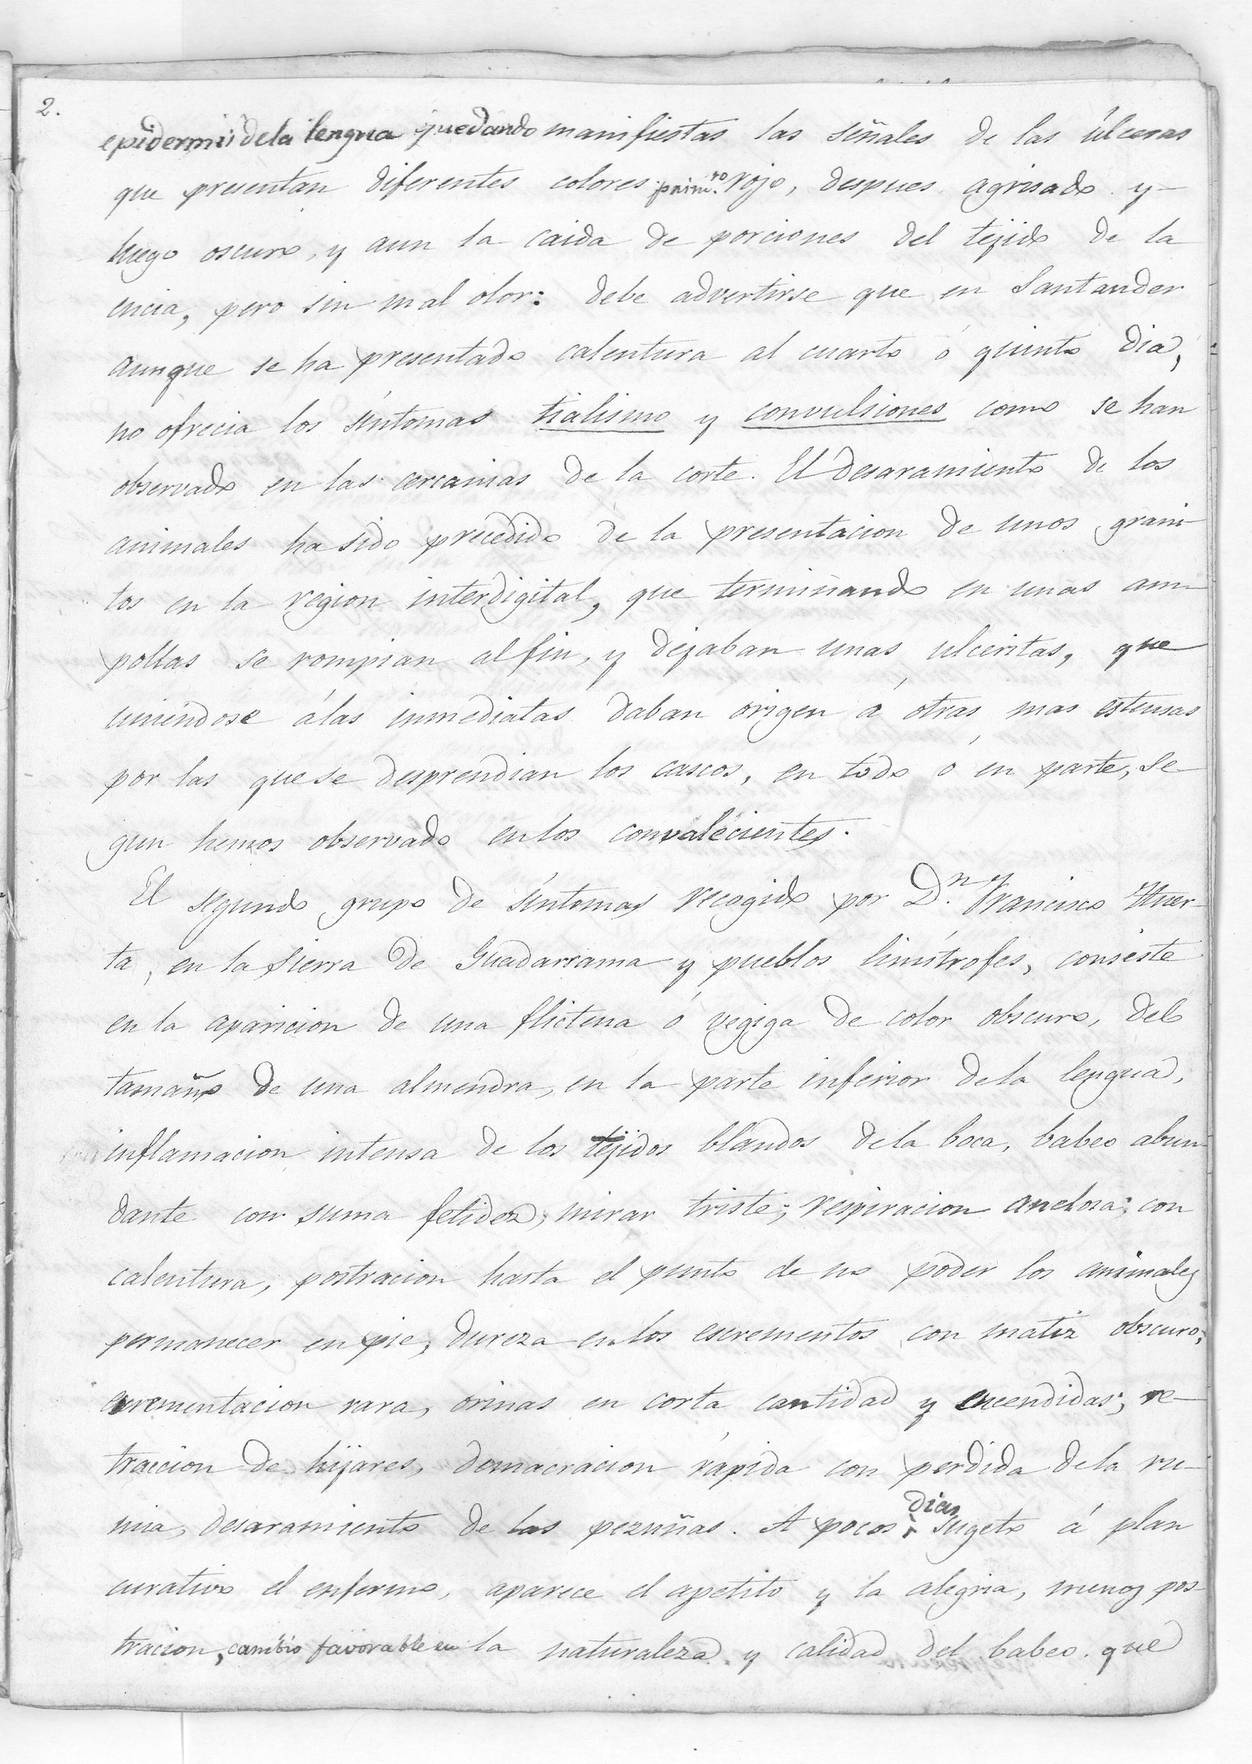 2.
epidermis dela lengua quedando manifiestas las señales de las úlceras
que presentan diferentes colores prim.ro rojo, despues agrisado y-
luego oscuro, y aun la caida de porciones del tejido de la
encia, pero sin mal olor: debe advertirse que en Santander
aunque se ha presentado calentura al cuarto ó quinto dia,
no ofrecia los síntomas tialismo y convulsiones como se han
observado en las cercanias de la corte. El desaramiento de los
animales ha sido precedido de la presentacion de unos grani-
tos en la region interdigital, que terminando en unas am-
pollas se rompian al fin, y dejaban unas ulceritas, que
uniéndose álas inmediatas daban origen á otras mas estensas
por las que se desprendian los cascos, en todo ó en parte, se
gun hemos observado enlos convalecientes.
El segundo grupo de síntomas recogido por D.n Francisco Huer-
ta, en la Sierra de Guadarrama y pueblos limítrofes, consiste
en la aparicion de una flictena ó vegiga de color obscuro, del
tamaño de una almendra, en la parte inferior dela lengua,
inflamacion intensa de los tejidos blandos dela boca, babeo abun-
dante con suma fetidez; mirar triste; respiracion anelosa; con
calentura, postracion hasta el punto de no poder los animales
permanecer en pie, dureza en los escrementos con matiz obscuro;
escrementacion rara, orinas en corta cantidad y encendidas; re-
traccion de hijares, demacracion rápida con perdida dela ru-
mia, desaramiento de las pezuñas. A pocos dias sugeto á plan
curativo el enfermo, aparece el apetito y la alegria, menos pos-
tracion, cambio favorable en la naturaleza y calidad del babeo que